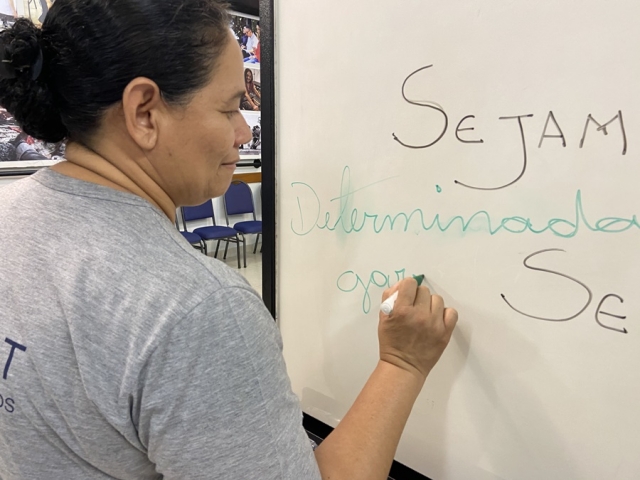 SEJAM
Determinada
gar
SE
T
OS